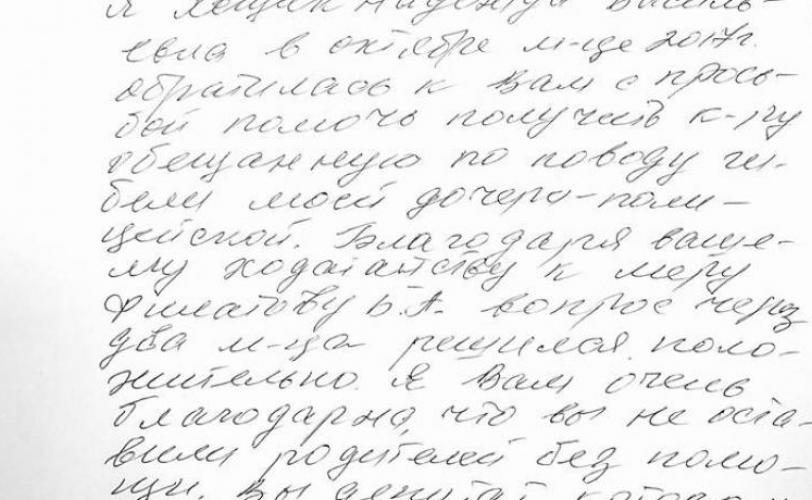 Я Хощик Надежда Василь-
евна в октябре м-це 2017г.
обратилась к Вам с прось-
бой помочь получить к-ру
обещанную по поводу ги-
бели моей дочери-поли-
цейской. Благодаря ваше-
му ходатайству к меру
Филатову Б.А. вопрос через
два м-ца решился поло-
жительно. Я Вам очень
благодарна, что вы не оста-
вили родителей без помо-
щи. Вы депутат